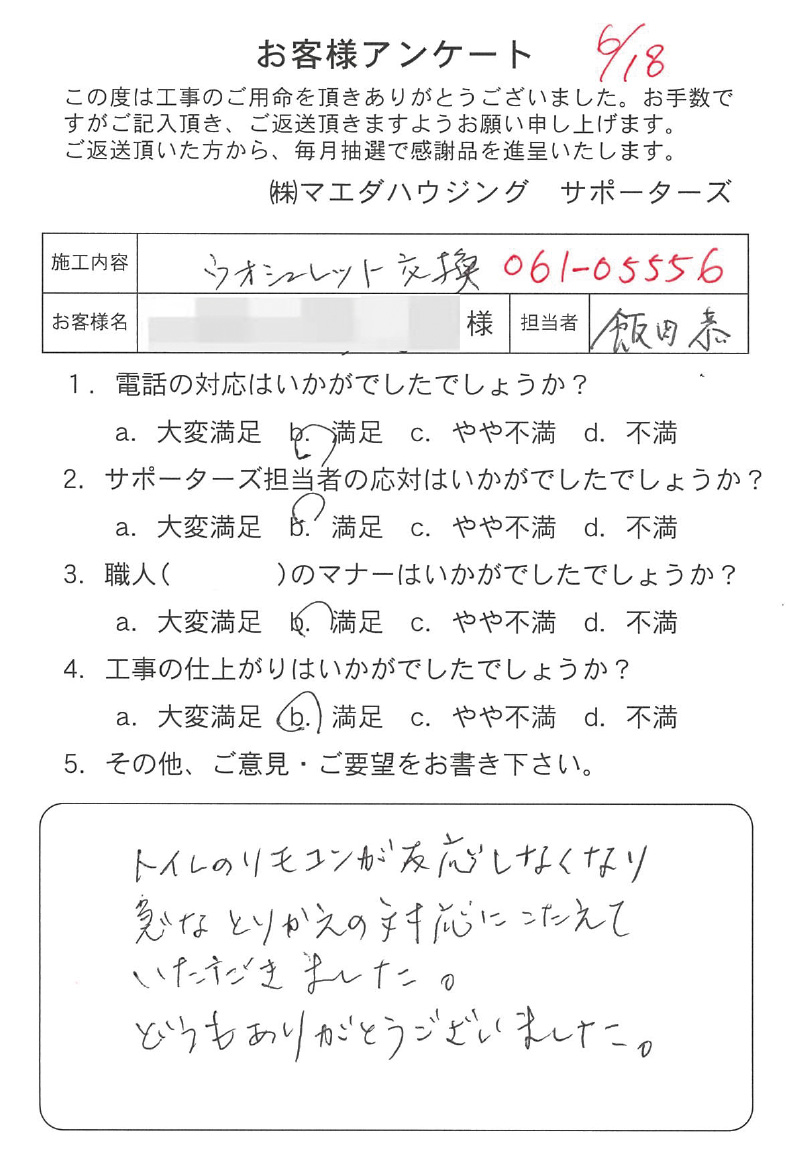 お客様アンケート 6/18
この度は工事のご用命を頂きありがとうございました。お手数で
すがご記入頂き、ご返送頂きますようお願い申し上げます。
ご返送頂いた方から、毎月抽選で感謝品を進呈いたします。
㈱マエダハウジング　サポーターズ
施工内容 ウオシュレット交換 061-05556
お客様名 様 担当者 飯田恭
1．電話の対応はいかがでしたでしょうか？
a．大変満足 b．満足 c．やや不満 d．不満
2．サポーターズ担当者の応対はいかがでしたでしょうか？
a．大変満足 b．満足 c．やや不満 d．不満
3．職人(　　　　)のマナーはいかがでしたでしょうか？
a．大変満足 b．満足 c．やや不満 d．不満
4．工事の仕上がりはいかがでしたでしょうか？
a．大変満足 b．満足 c．やや不満 d．不満
5．その他、ご意見・ご要望をお書き下さい。
トイレのリモコンが反応しなくなり
急なとりかえの対応にこたえて
いただきました。
どうもありがとうございました。